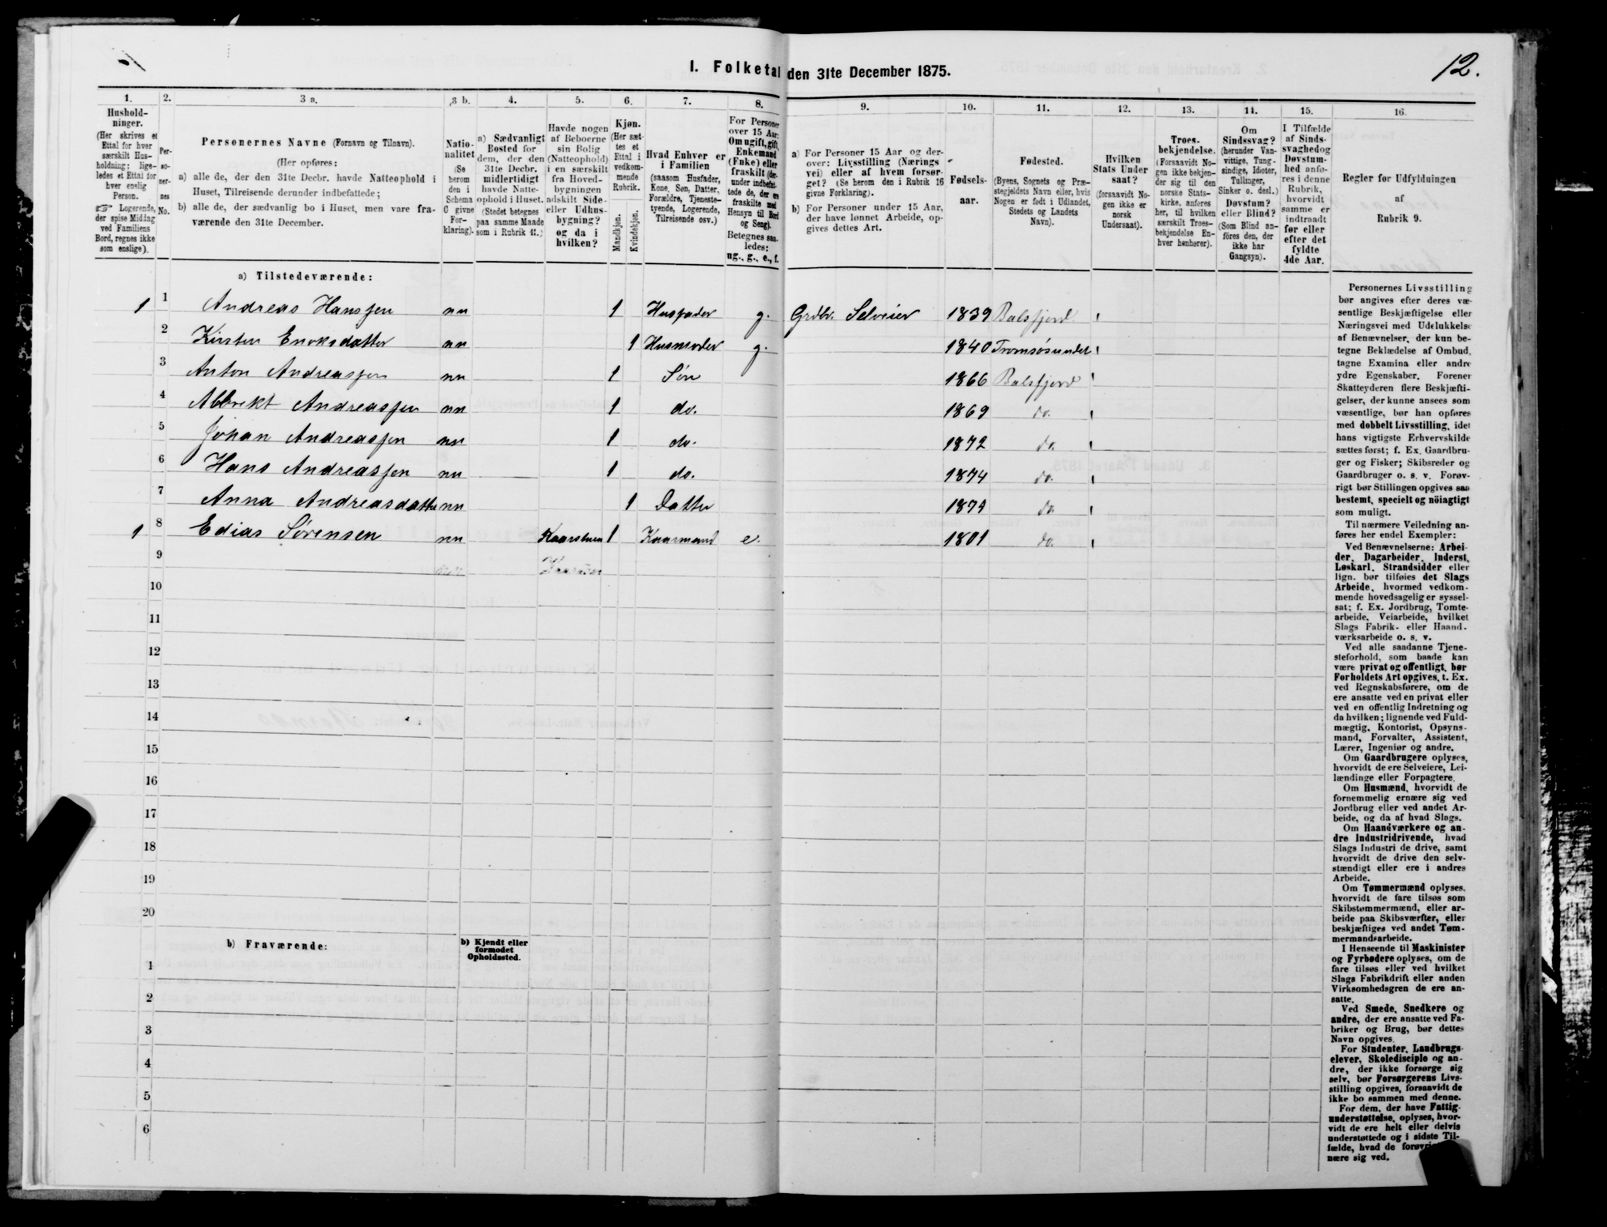 12.
I. Folketal den 31te December 1875.
1. 2. 3 a. 3 b. 4. 5. 6. 7. 8. 9. 10. 11. 12. 13. 14. 15. 16.
Hushold-
ninger.
(Her skrives et
Ettal for hver
særskilt Hus-
holdning; lige-
ledes et Ettal for
hver enslig
Person.
Logerende,
der spise Middag
ved Familiens
Bord, regnes ikke
som enslige).
Per-
so-
ner-
nes
No.
Personernes Navne (Fornavn og Tilnavn).
(Her opføres:
a) alle de, der den 31te Decbr. havde Natteophold i
Huset, Tilreisende derunder indbefattede;
b) alle de, der sædvanlig bo i Huset, men vare fra-
værende den 31te December.
Natio-
nalitet
(Se
herom
den i
Schema
O givne
For-
klaring).
a) Sædvanligt
Bosted for
dem, der den
31te Decbr.
midlertidigt
havde Natte-
ophold i Huset.
(Stedet betegnes
paa samme Maade
som i Rubrik 11.)
Havde nogen
af Beboerne
sin Bolig
(Natteophold)
i en særskilt
fra Hoved-
bygningen
adskilt Side-
eller Udhus-
bygning?
og da i
hvilken?
Kjøn.
(Her sæt-
tes et
Ettal i
vedkom-
mende
Rubrik.
Mandkjøn.
Kvindekjøn.
Hvad Enhver er
i Familien
(saasom Husfader,
Kone, Søn, Datter,
Forældre, Tjeneste-
tyende, Logerende,
Tilreisende osv.)
For Personer
over 15 Aar:
Om ugift, gift,
Enkemand
(Enke) eller
fraskilt
Betegnes saa-
ledes:
ug., g., e., f.
a) For Personer 15 Aar og der-
over: Livsstilling (Nærings
vei) eller af hvem forsør-
get? (Se herom den i Rubrik 16
givne Forklaring).
b) For Personer under 15 Aar,
der have lønnet Arbeide, op-
gives dettes Art.
Fødsels-
aar.
Fødested.
(Byens, Sognets og Præ-
stegjeldets Navn eller, hvis
Nogen er født i Udlandet,
Stedets og Landets
Navn).
Hvilken
Stats Under
saat?
(forsaavidt No-
gen ikke er
norsk
Undersaat).
Troes-
bekjendelse.
(Forsaavidt No-
gen ikke bekjen-
der sig til den
norske Stats-
kirke, anføres
her, til hvilken
særskilt Troes-
bekjendelse En-
hver henhører).
Om
Sindssvag?
(herunder Van-
vittige, Tung-
sindige, Idioter,
Tullinger,
Sinker o. desl.)
Døvstum?
eller Blind?
(Som Blind an-
føres den, der
ikke har
Gangsyn).
I Tilfælde
af Sinds-
svaghed og
Døvstum-
hed anfø-
res i denne
Rubrik,
hvorvidt
samme er
indtraadt
før eller
efter det
fyldte
4de Aar.
Regler for Udfyldningen
af
Rubrik 9.
a) Tilstedeværende:
1 1 Andreas Hanssen nn 1 Husfader g. Grdbr. Selveier 1839 Balsfjord
2 Kirsten Enoksdatter nn 1 Husmoder g. 1840 Tromsøsundet
3 Anton Andreassen nn 1 Søn 1866 Balsfjord
4 Albrekt Andreassen nn 1 do. 1869 do.
5 Johan Andreassen nn 1 do. 1872 do.
6 Hans Andreassen nn 1 do. 1874 do.
7 Anna Andreasdatter nn 1 Datter 1874 do.
1 8 Edias Sørensen nn 1 Kaarmand e. 1801 do.
9
10
11
12
13
14
15
16
17
18
19
20
b) Fraværende:
b) Kjendt eller
formodet
Opholdssted.
1
2
3
4
5
6
Personernes Livsstilling
bør angives efter deres væ-
sentlige Beskjæftigelse eller
Næringsvei med Udelukkelse
af Benævnelser, der kun be-
tegne Beklædelse af Ombud,
tagne Examina eller andre
ydre Egenskaber. Forener
Skatteyderen flere Beskjæfti-
gelser, der kunne ansees som
væsentlige, bør han opføres
med dobbelt Livsstilling, idet
hans vigtigste Erhvervskilde
sættes først; f. Ex. Gaardbru-
ger og Fisker; Skibsreder og
Gaardbruger o. s. v. Forøv-
rigt bør Stillingen opgives saa
bestemt, specielt og nöiagtigt
som muligt.
Til nærmere Veiledning an-
føres her endel Exempler:
Ved Benævnelserne: Arbei-
der, Dagarbeider, Inderst,
Løskarl, Strandsidder eller
lign. bør tilføies det Slags
Arbeide, hvormed vedkom-
mende hovedsagelig er syssel-
sat; f. Ex. Jordbrug, Tomte-
arbeide, Veiarbeide, hvilket
Slags Fabrik- eller Haand-
værksarbeide o. s. v.
Ved alle saadanne Tjene-
steforhold, som baade kan
være privat og offentligt, bør
Forholdets Art opgives, t. Ex.
ved Regnskabsførere, om de
ere ansatte ved en privat eller
ved en offentlig Indretning og
da hvilken; lignende ved Fuld-
mægtig, Kontorist, Opsyns-
mand, Forvalter, Assistent,
Lærer, Ingeniør og andre.
Om Gaardbrugere oplyses,
hvorvidt de ere Selveiere, Lei-
lændinge eller Forpagtere.
Om Husmænd, hvorvidt de
fornemmelig ernære sig ved
Jordbrug eller ved andet Ar-
beide, og da af hvad Slags.
Om Haandværkere og an-
dre Industridrivende, hvad
Slags Industri de drive, samt
hvorvidt de drive den selv-
stændigt eller ere i andres
Arbeide.
Om Tømmermænd oplyses,
hvorvidt de fare tilsøs som
Skibstømmermænd, eller ar-
beide paa Skibsværfter, eller
beskjæftiges ved andet Tøm-
mermandsarbeide.
I Henseende til Maskinister
og Fyrbødere oplyses, om de
fare tilsøs eller ved hvilket
Slags Fabrikdrift eller anden
Virksomhedsgren de ere an-
satte.
Ved Smede, Snedkere og
andre, der ere ansatte ved Fa-
briker og Brug, bør dettes
Navn opgives.
For Studenter, Landbrugs-
elever, Skoledisciple og an-
dre, der ikke forsørge sig
selv, bør Forsørgerens Livs-
stilling opgives, forsaavidt de
ikke bo sammen med denne.
For dem, der have Fattig-
understøttelse, oplyses, hvor-
vidt de ere helt eller delvis
understøttede og i sidste Til-
fælde, hvad de
nære sig ved.